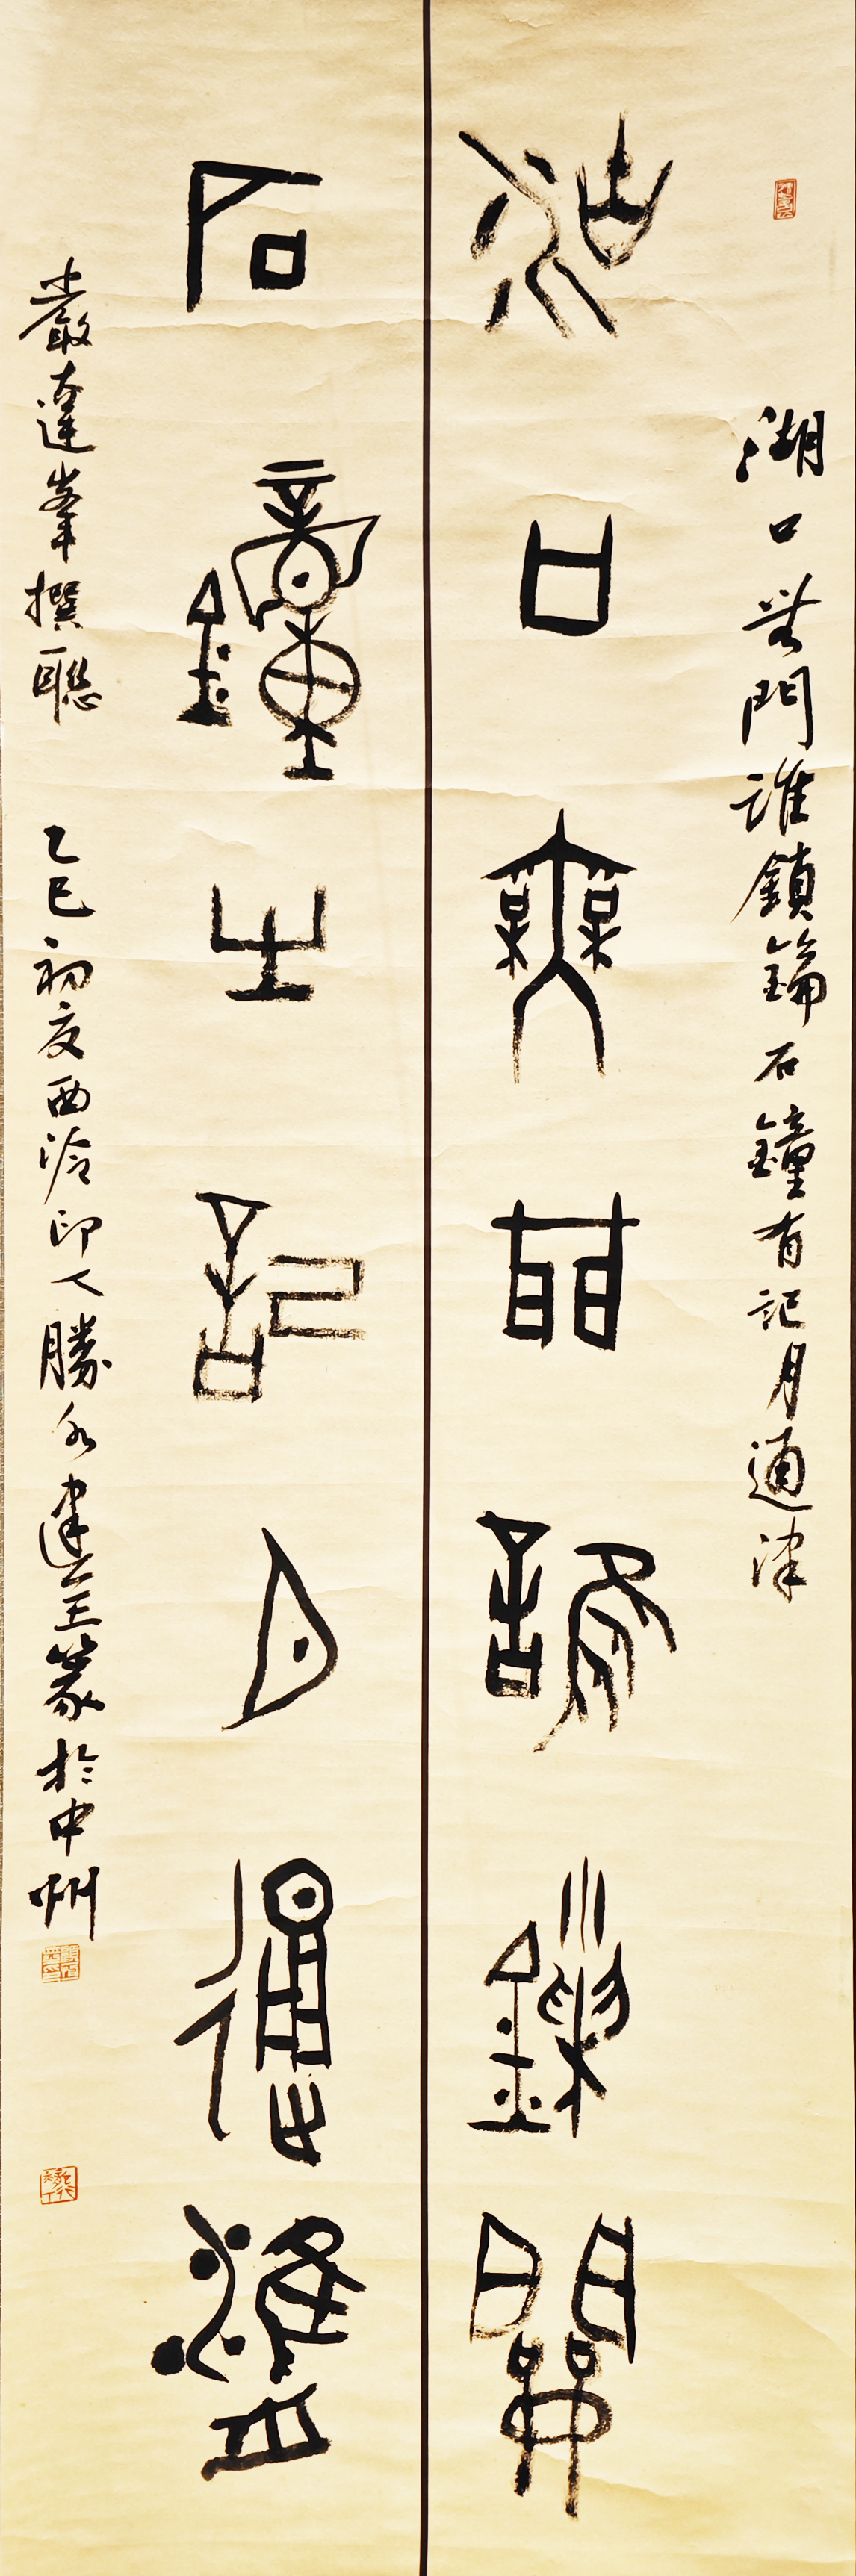 湖口無門誰鎖鑰石鐘有記月通津
湖口無門誰鎖鑰
石鐘有記月通津
嚴達峯撰聯 乙巳初夏西泠印人勝水建篆於中州